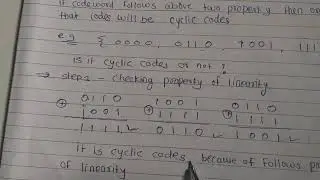 If codeword follows above two property, then on
that codes will be cyclic codes
e.g { 0000, 0110, 1001, 111
Is it cyclic codes or not ?
→ step1 - checking property of linearity
0110 1001 0110
⊕ 1001 ⊕ 1111 ⊕ 1111
1111 ✓ 0110 ✓ 1001 ✓
It is cyclic codes because of follows p
of linearity